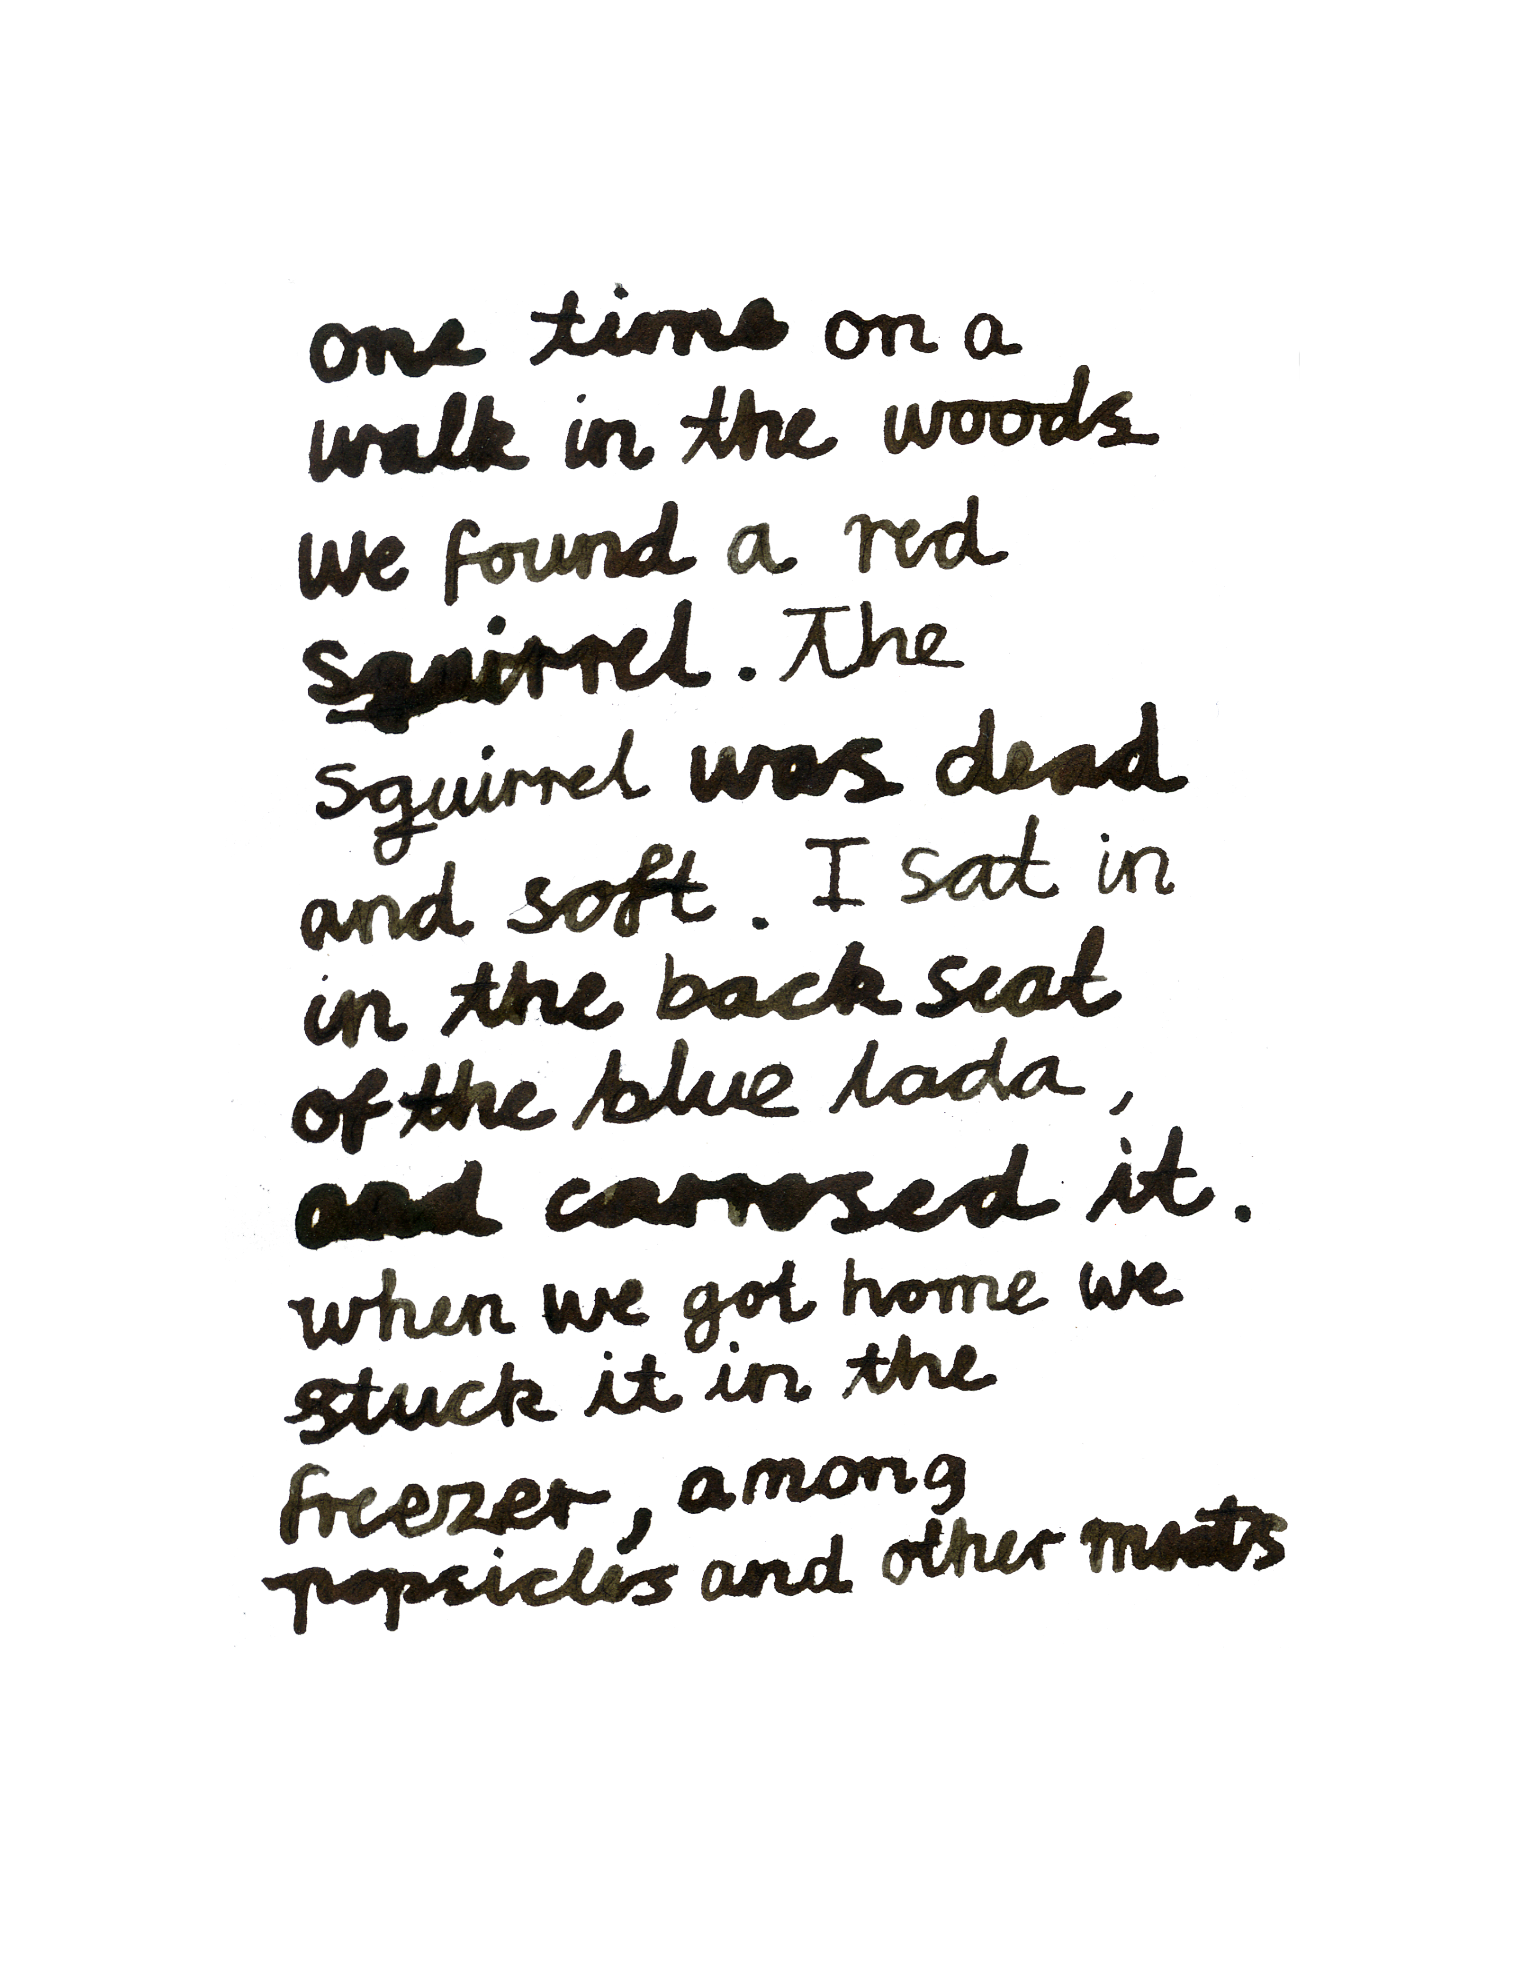 one time on a
walk in the woods
we found a red
squirrel. The
squirrel was dead
and soft. I sat in
in the back seat
of the blue lada,
and carrosed it.
when we got home we
stuck it in the
freezer, among
popsicles and other meats